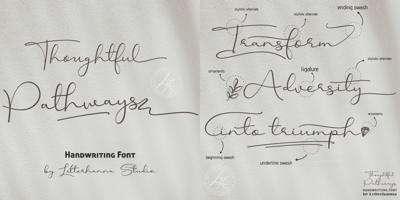 Thoughtful
Pathways
Handwriting Font
by Letterhanna Studio
stylistic alternate
stylistic alternate
ending swash
Transform
stylistic alternate
ligature
ornaments
Adversity
ornaments
into triumph
beginning swash
underline swash
Thoughtful
Pathways
HANDWRITING FONT
by Letterhanna